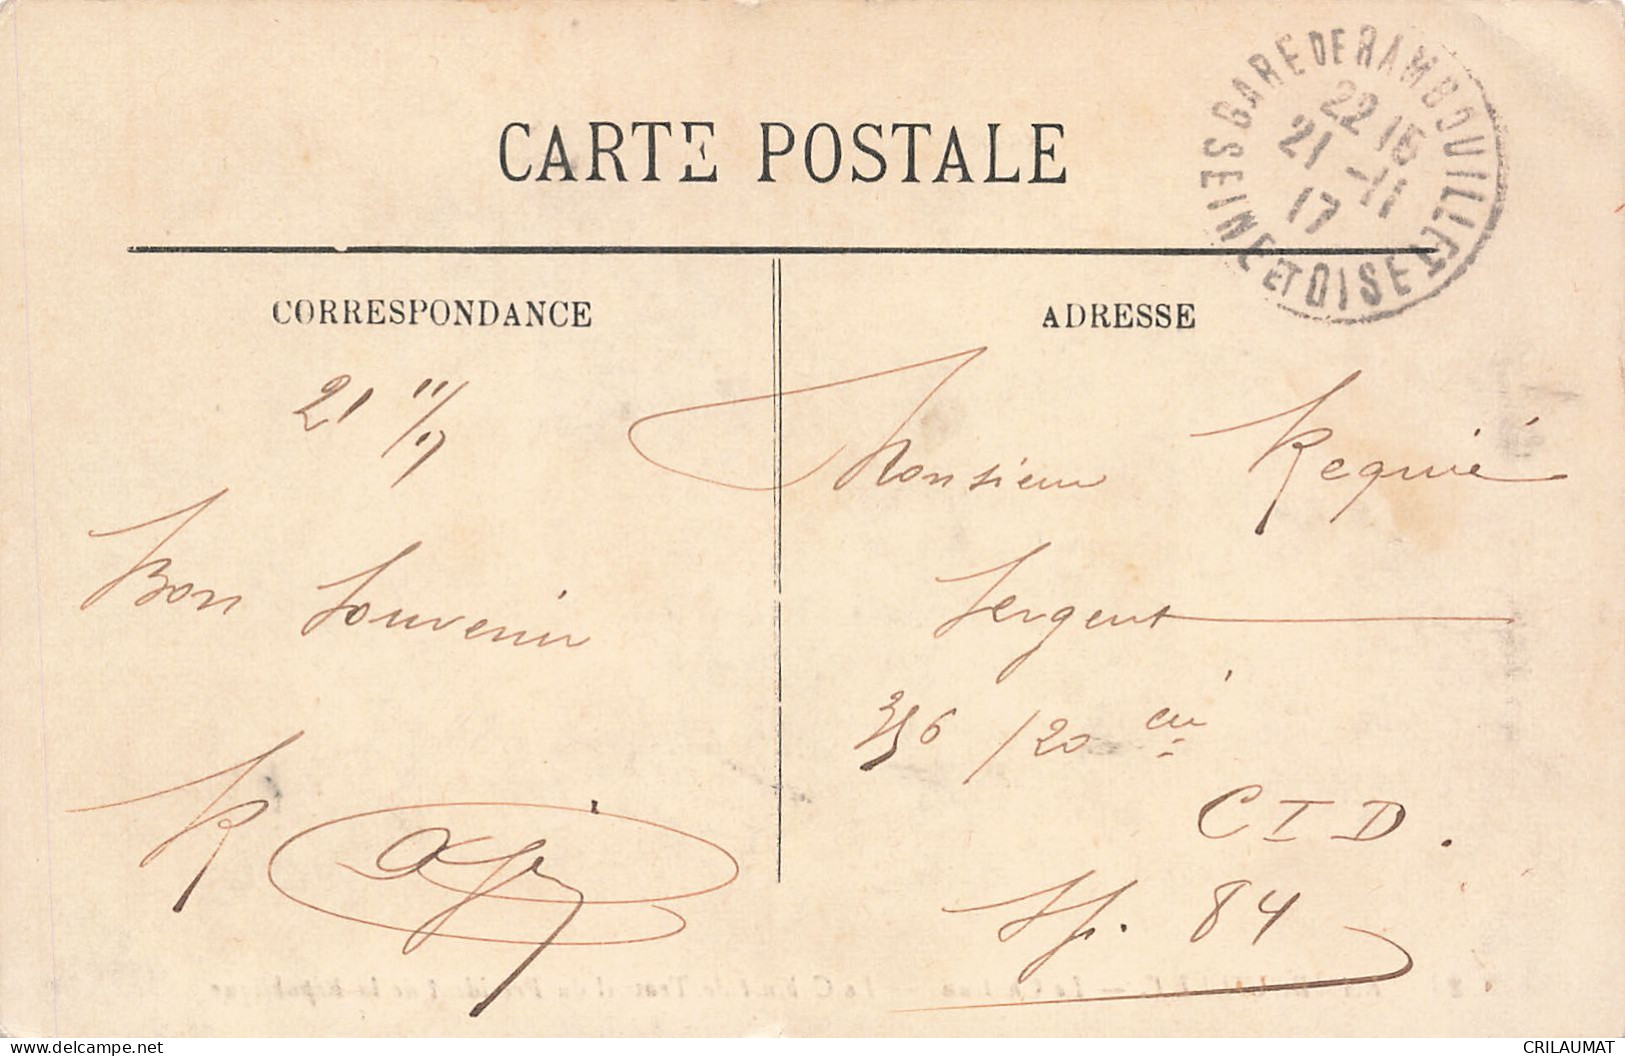 CARTE POSTALE
GARE DE RAMBOUILLET
SEINE ET OISE
22 15
21 -11
17
CORRESPONDANCE
ADRESSE
21 11/17
Bon Souvenir
Monsieur Requié
Sergent
356 /20 cie
C I D.
Sp. 84
www.delcampe.net
CRILAUMAT